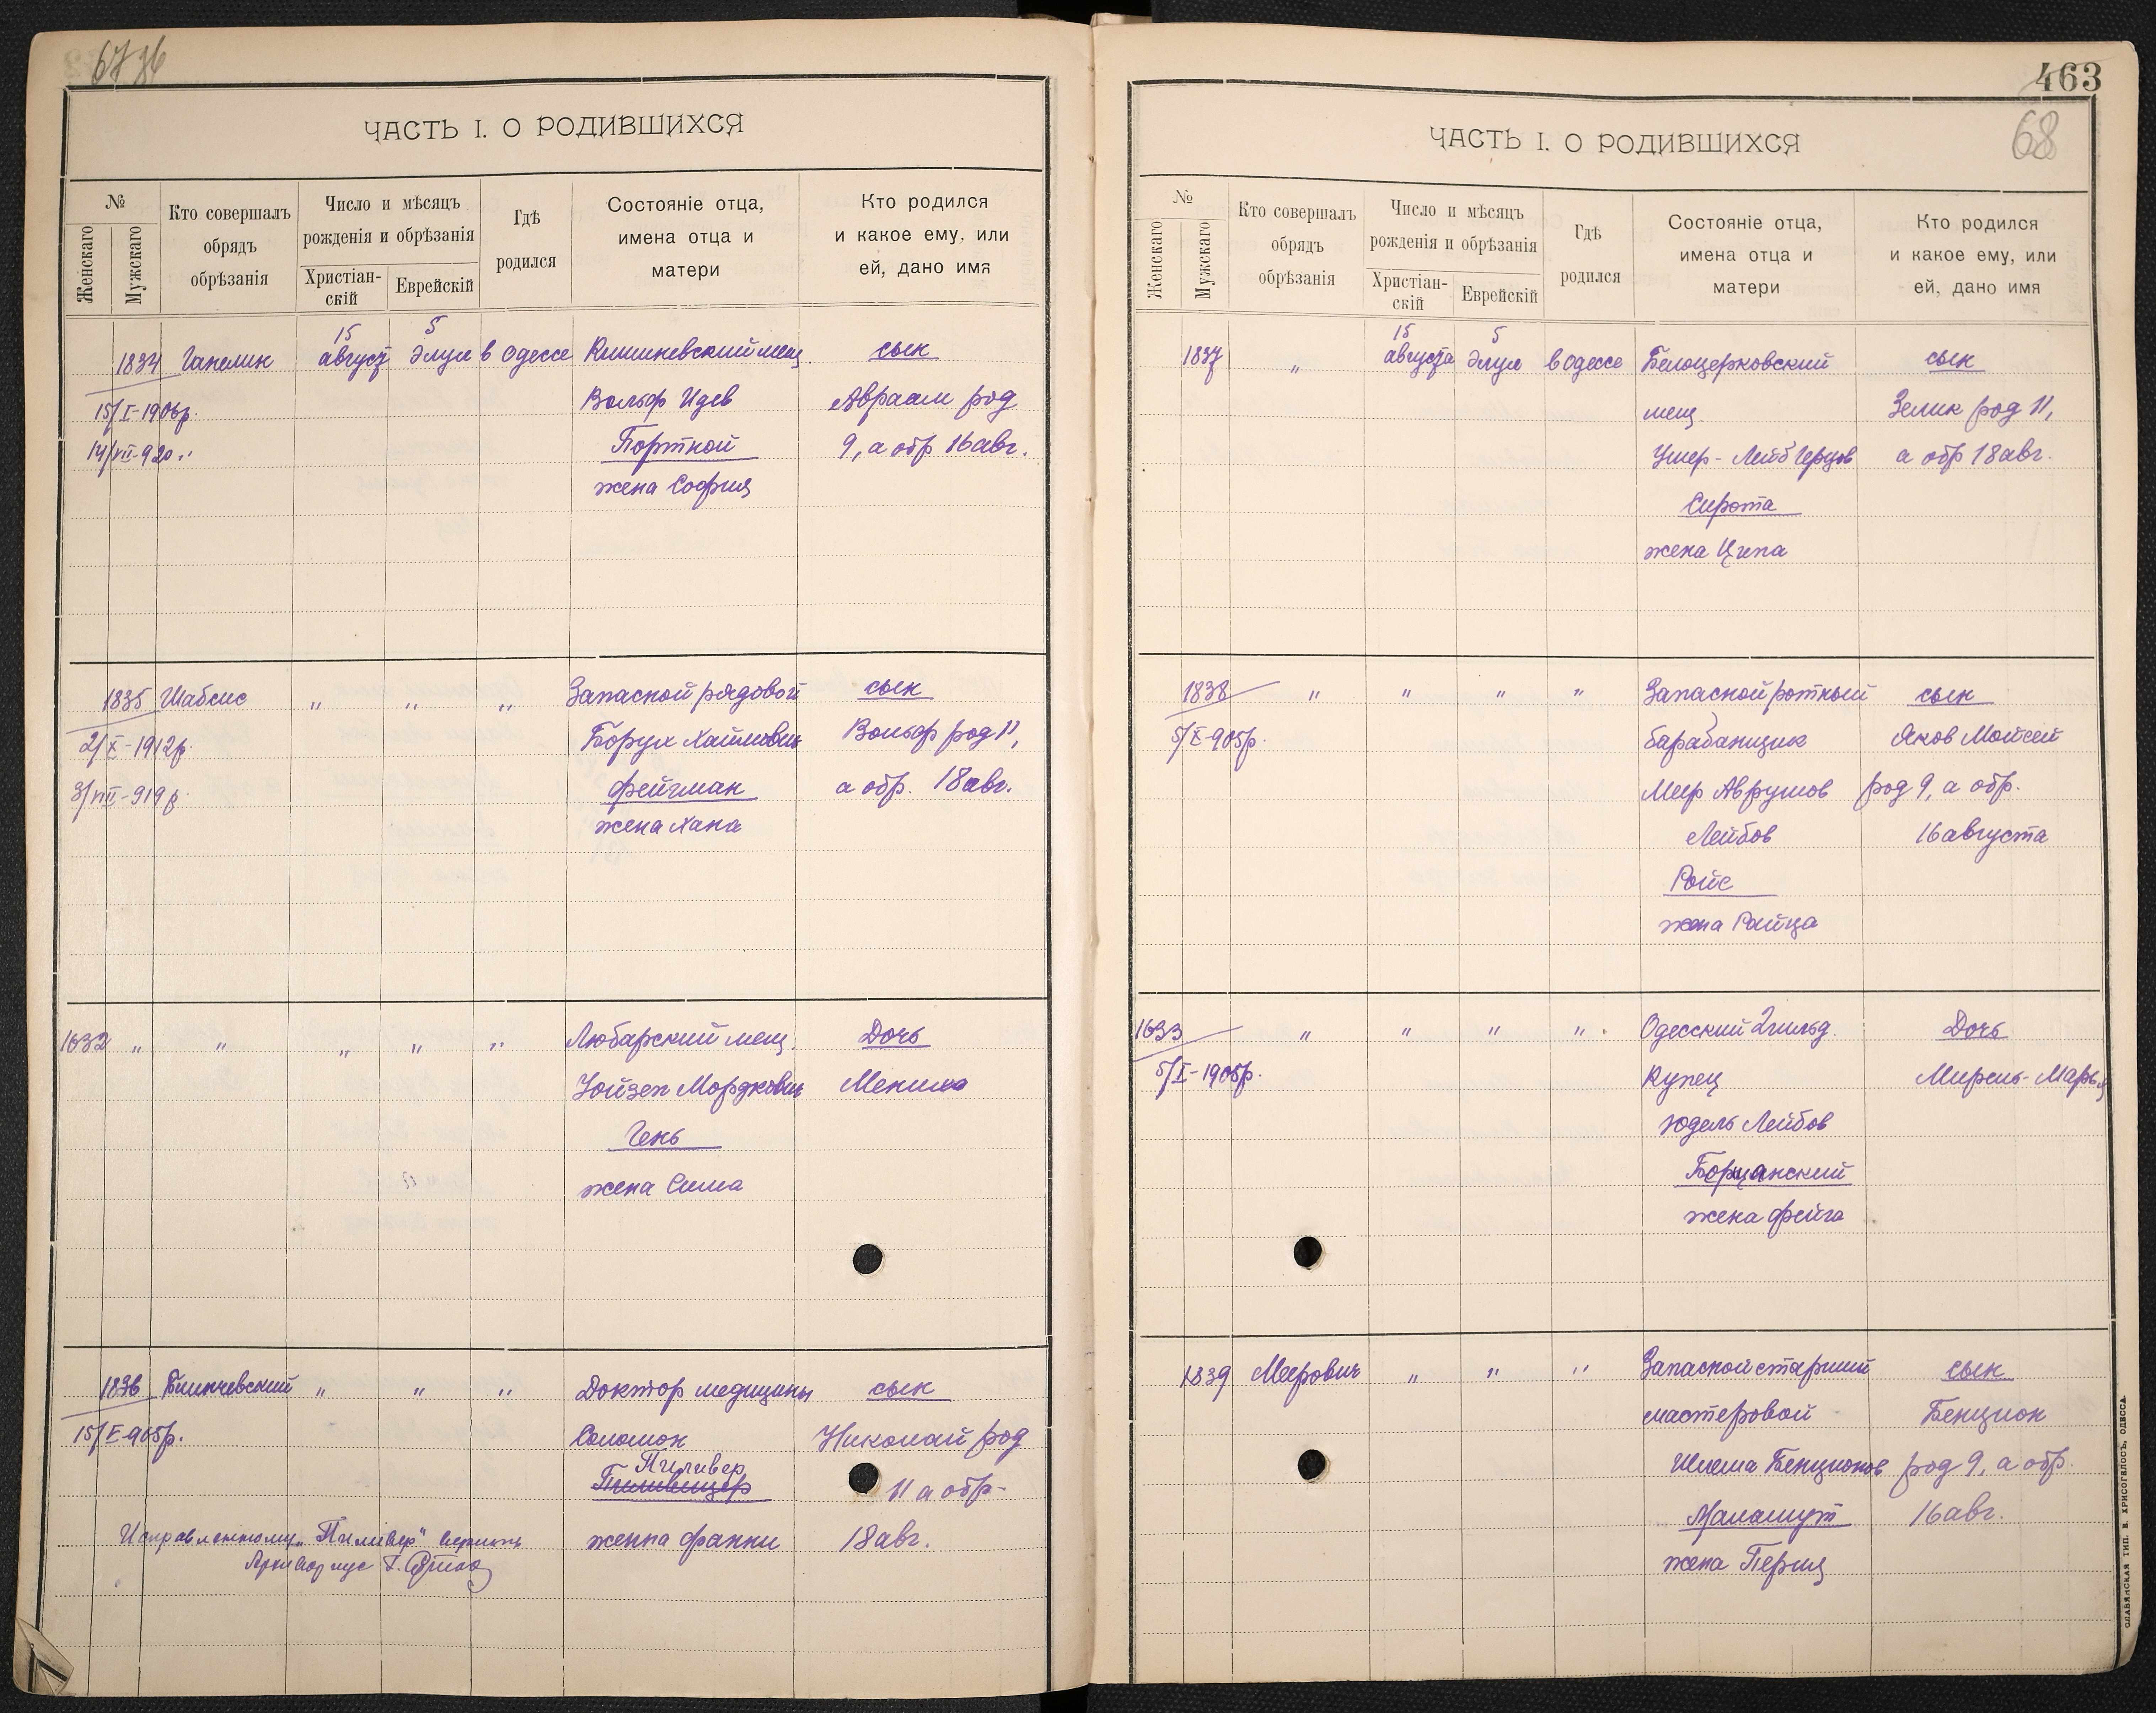 67 36
ЧАСТЬ I. О РОДИВШИХСЯ
№
Женскаго
Мужскаго
Кто совершалъ
обрядъ
обрѣзанія
Число и мѣсяцъ
рожденія и обрѣзанія
Христіан-
скій
Еврейскій
Гдѣ
родился
Состояніе отца,
имена отца и
матери
Кто родился
и какое ему, или
ей, дано имя
15 5
1834 Ганелин август Элул в Одессе Кишиневский мещ. сын
15/I-1906г. Вольф Идев Авраам род
14/VII-920 Портной 9, а обр 16 авг.
жена София
1835 Шабсис " " " Запасной рядовой сын
2/X-1912г. Борух Хаимович Вольф род 11,
3/VIII-919г. Фейгман а обр. 18 авг.
жена Хана
1632 " " " " " Любарский мещ. Дочь
Уойзен Мордкович Мениха
Гень
жена Сима
1836 Блинчевский " " " Доктор медицины сын
15/X-905г. Соломон Николай род
Пиливер
11 а обр-
Исправленному „Пиливер" верить женна Фанни 18 авг.
Архивариус
463
68
ЧАСТЬ I. О РОДИВШИХСЯ
№
Женскаго
Мужскаго
Кто совершалъ
обрядъ
обрѣзанія
Число и мѣсяцъ
рожденія и обрѣзанія
Христіан-
скій
Еврейскій
Гдѣ
родился
Состояніе отца,
имена отца и
матери
Кто родился
и какое ему, или
ей, дано имя
15 5
1837 " августа Элул в Одессе Белоцерковский сын
мещ. Зелик род 11,
Ушер-Лейб Герцов а обр 18 авг.
Сирота
жена Ципа
1838 " " " " Запасной ротный сын
5/X-905г. барабанщик Яков Мойсей
Меер Аврумов род 9, а обр.
Лейбов 16 августа
Ройс
жена Райца
1633 " " " " Одесский 2 гильд. Дочь
5/I-1905г. Купец Мирель-Марья
Юдель Лейбов
Борщанский
жена Фейга
1839 Меерович " " " Запасной старший сын
мастеровой Бенцион
Шлема Бенционов род 9, а обр.
Малашут 16 авг.
жена Перля
СЛАВЯНСКАЯ ТИП. Н. ХРИСОГЕЛОСЪ, ОДЕССА